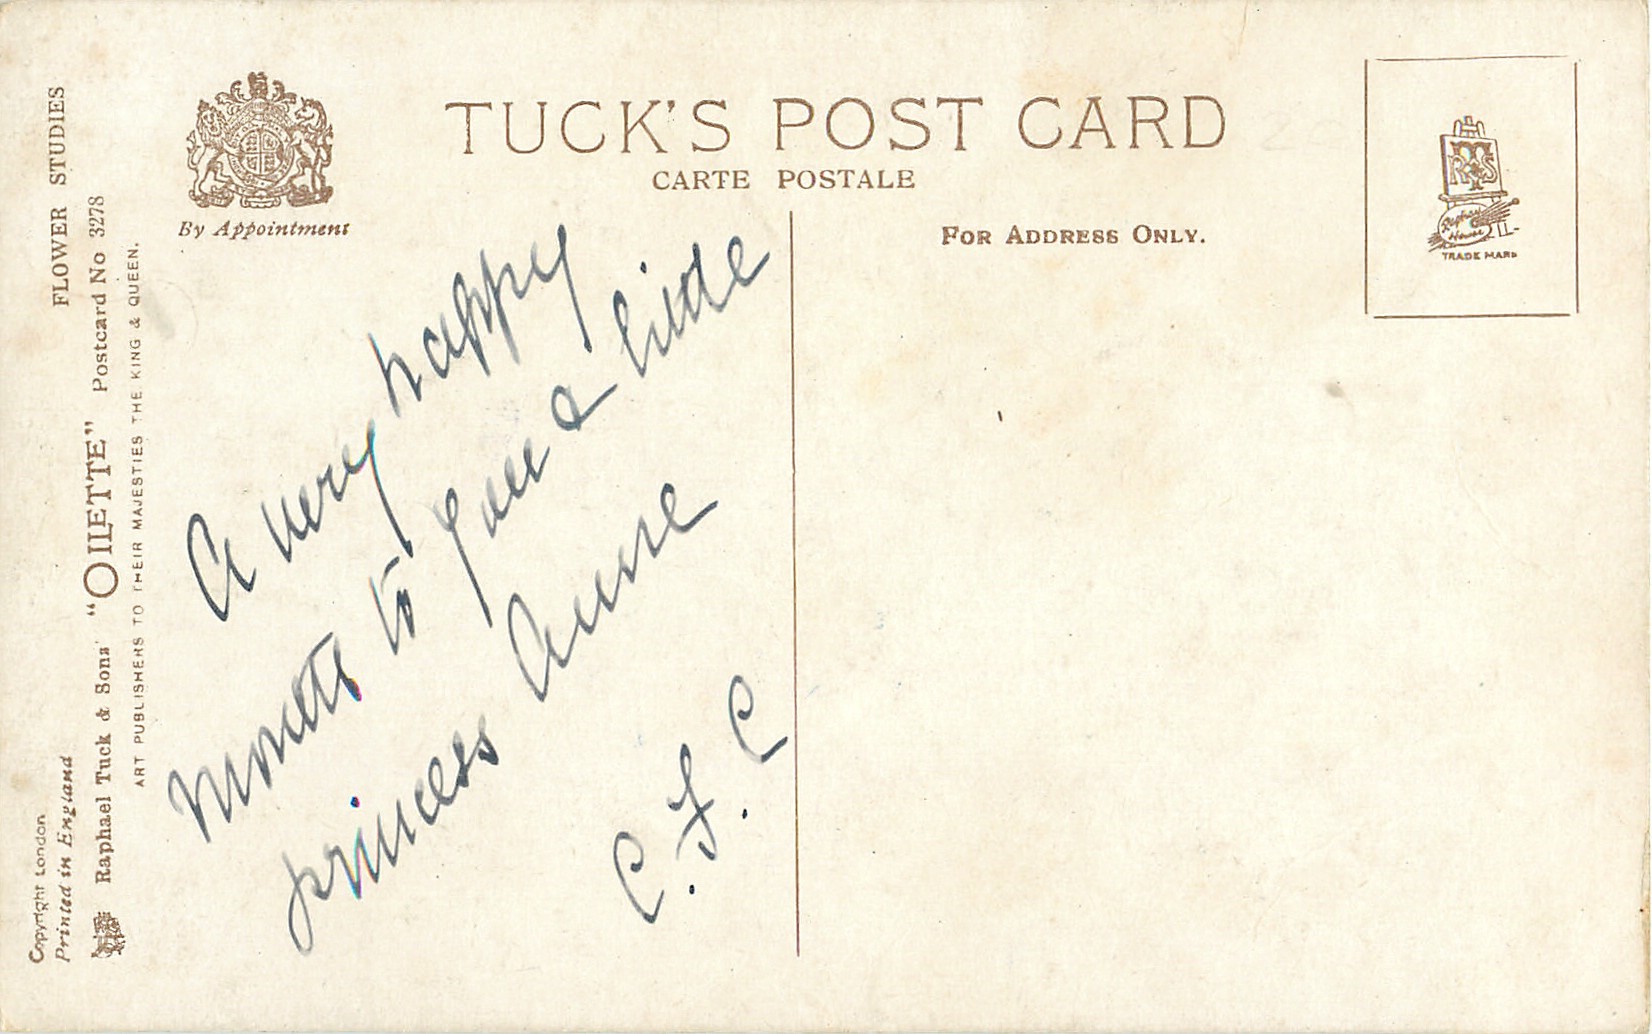 FLOWER STUDIES
Raphael Tuck & Sons' "OILETTE" Postcard No 3278
ART PUBLISHERS TO THEIR MAJESTIES THE KING & QUEEN.
Copyright London
Printed in England
By Appointment
TUCK'S POST CARD
CARTE POSTALE
FOR ADDRESS ONLY.
RTS
Raphael House
TRADE MARK
A very happy
to a little
princess Anne
C. F. C